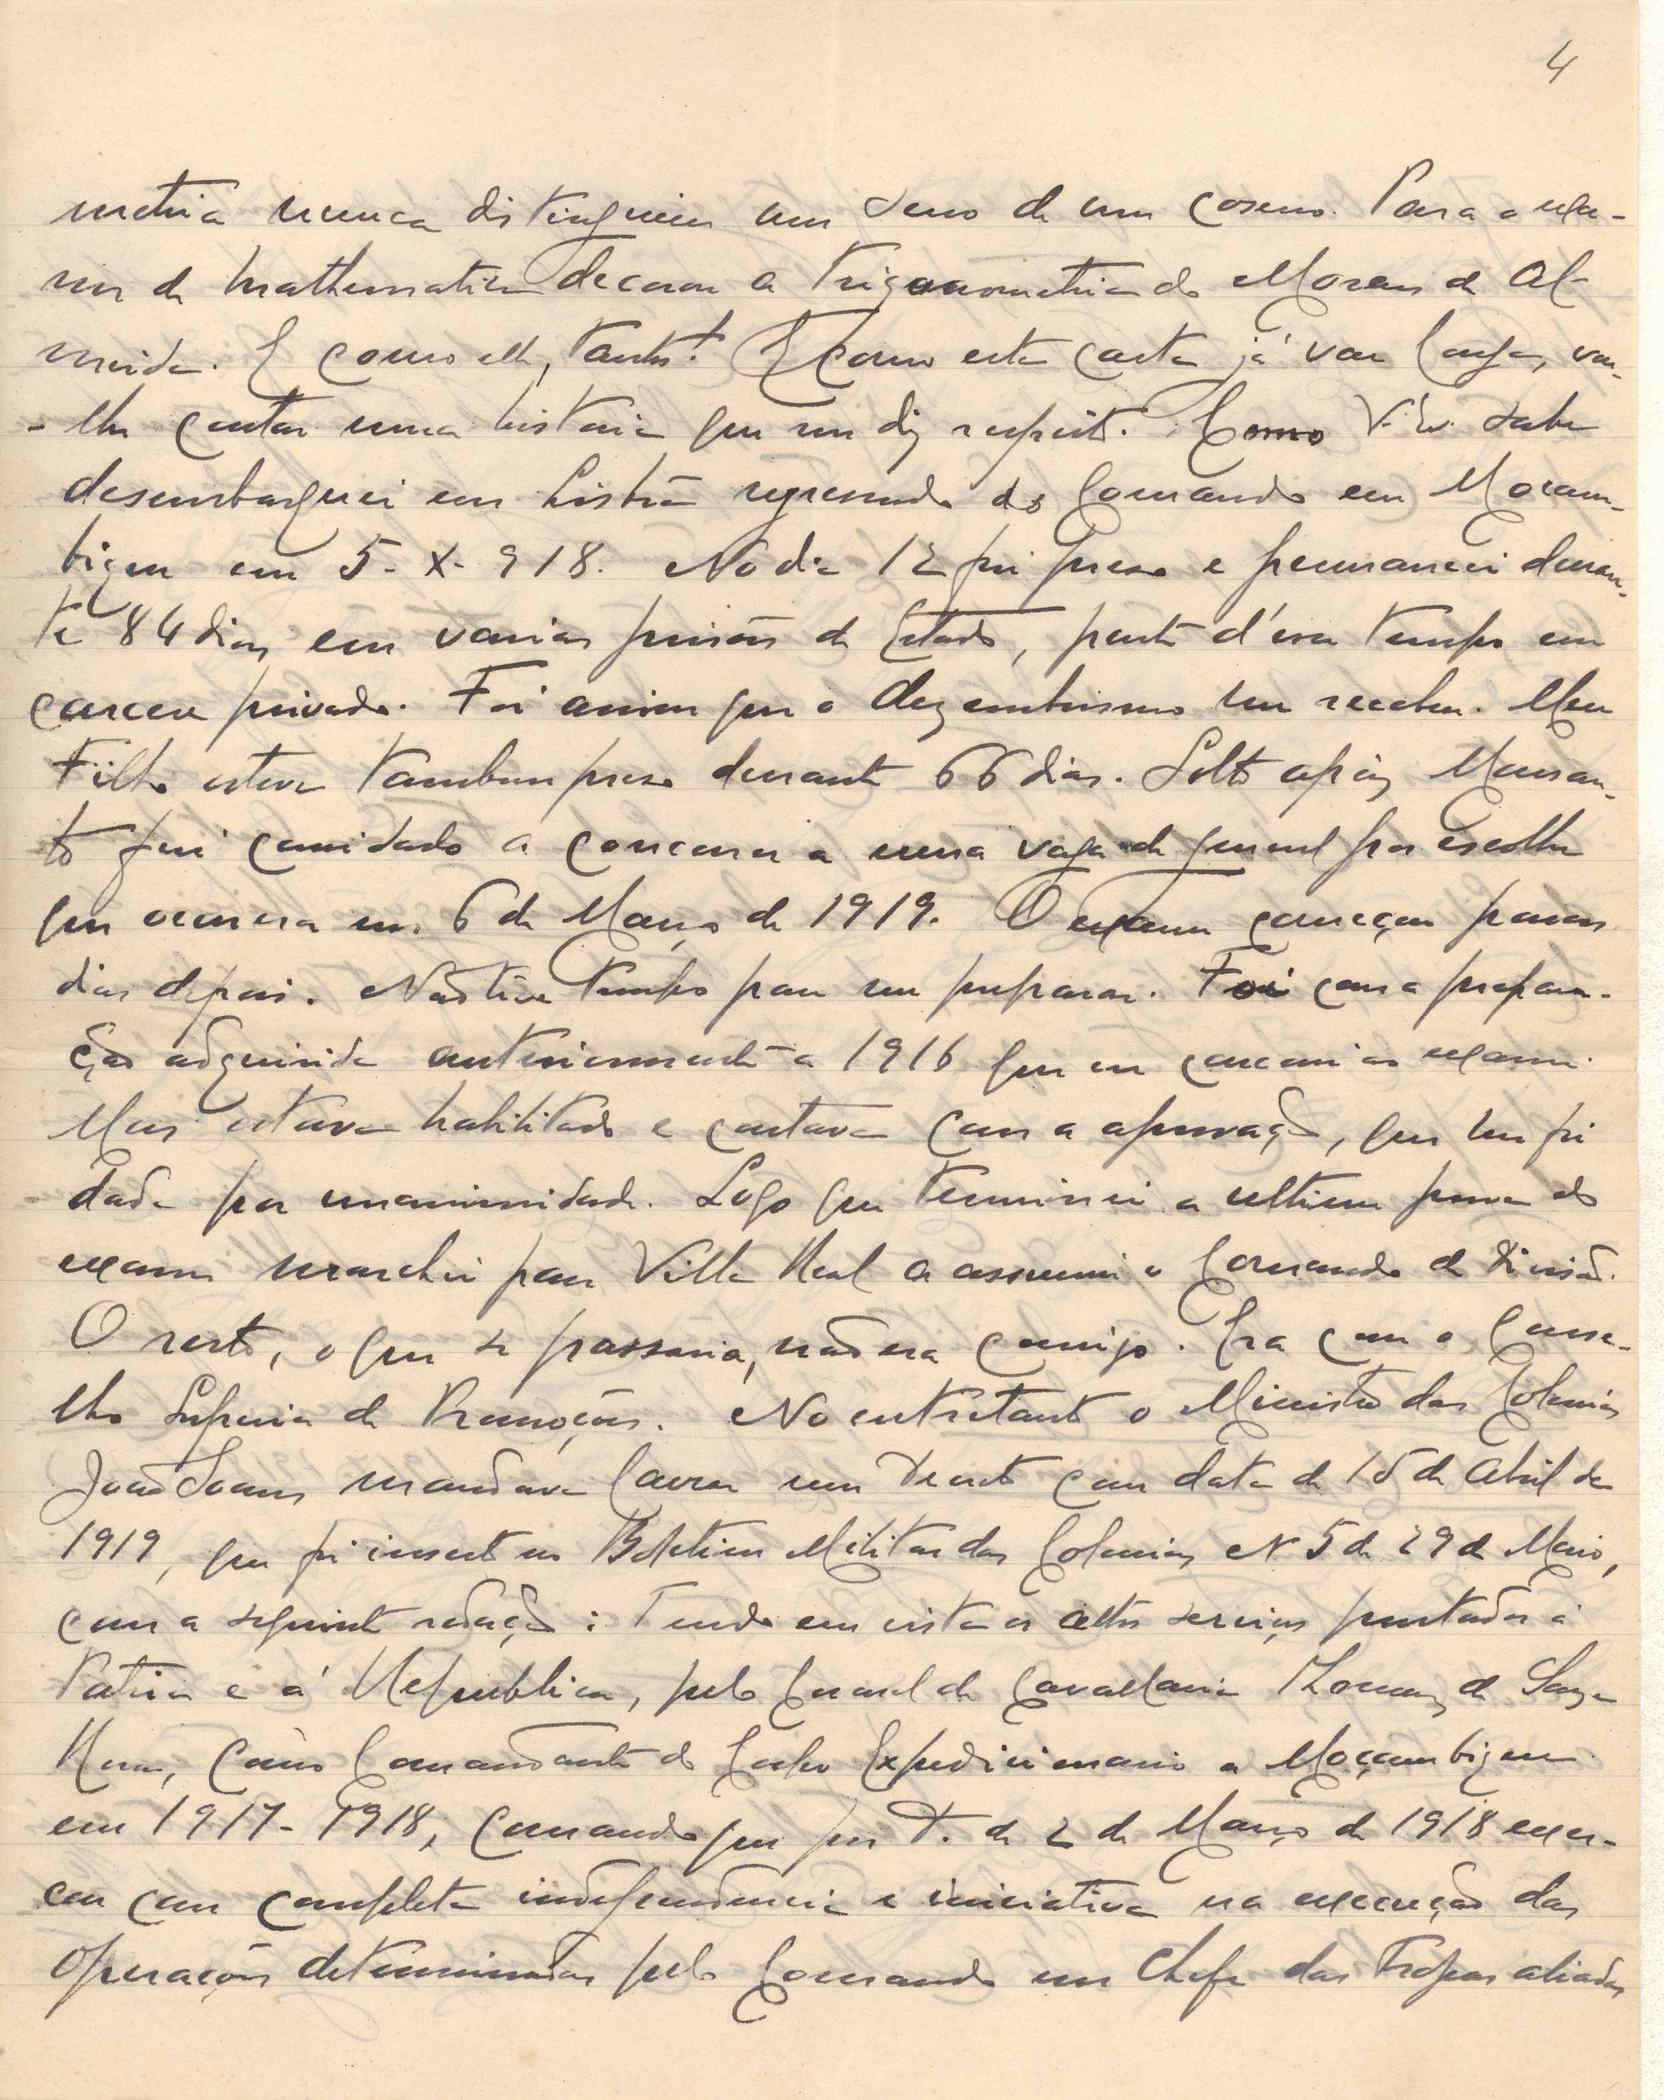 4
metria nunca distinguiu um seno de um coseno. Para o exa-
me de mathematica decorou a trigonometria do Moraes de Al-
meida. E como elle, tantos! E como esta carta já vae longa, vou
-lhe contar uma historia que me diz respeito. Como V. Ex. sabe
desembarquei em Lisbôa regressado do Comando em Moçam-
bique em 5-X-918. No dia 12 fui preso e permaneci duran-
te 84 dias em varias prisões do Estado, parte d'esse tempo em
carcere privado. Foi assim que o dezembrismo me recebeu. Meu
Filho esteve tambem preso durante 66 dias. Solto após Monsan-
to fui convidado a concorrer a uma vaga de general por escolha
que ocorrera em 6 de Março de 1919. O exame começou poucos
dias depois. Não tive tempo para me preparar. Foi com a prepara-
ção adquirida anteriormente a 1916 que eu concorri ao exame.
Mas estava habilitado e contava com a aprovação, que me foi
dada por unanimidade. Logo que terminei a ultima prova do
exame marchei para Villa Real a assumir o Comando da Divisão.
O resto, o que se passaria, não era comigo. Era com o Conse-
lho Superior de Promoções. No entretanto o Ministro das Colonias
João Soares mandava lavrar um Decreto com data de 15 de Abril de
1919, que foi inserto no Boletim Militar das Colonias Nº 5 de 29 de Maio,
com a seguinte redação: Tendo em vista os altos serviços prestados á
Patria e á Republica, pelo Coronel de Cavallaria Thomaz de Souza
Rosa, como Comandante do Corpo Expedicionario a Moçambique
em 1917-1918, Comando que por D. de 2 de Março de 1918 exer-
ceu com completa independencia e iniciativa na execução das
Operações determinadas pelo Comando em Chefe das Tropas aliadas